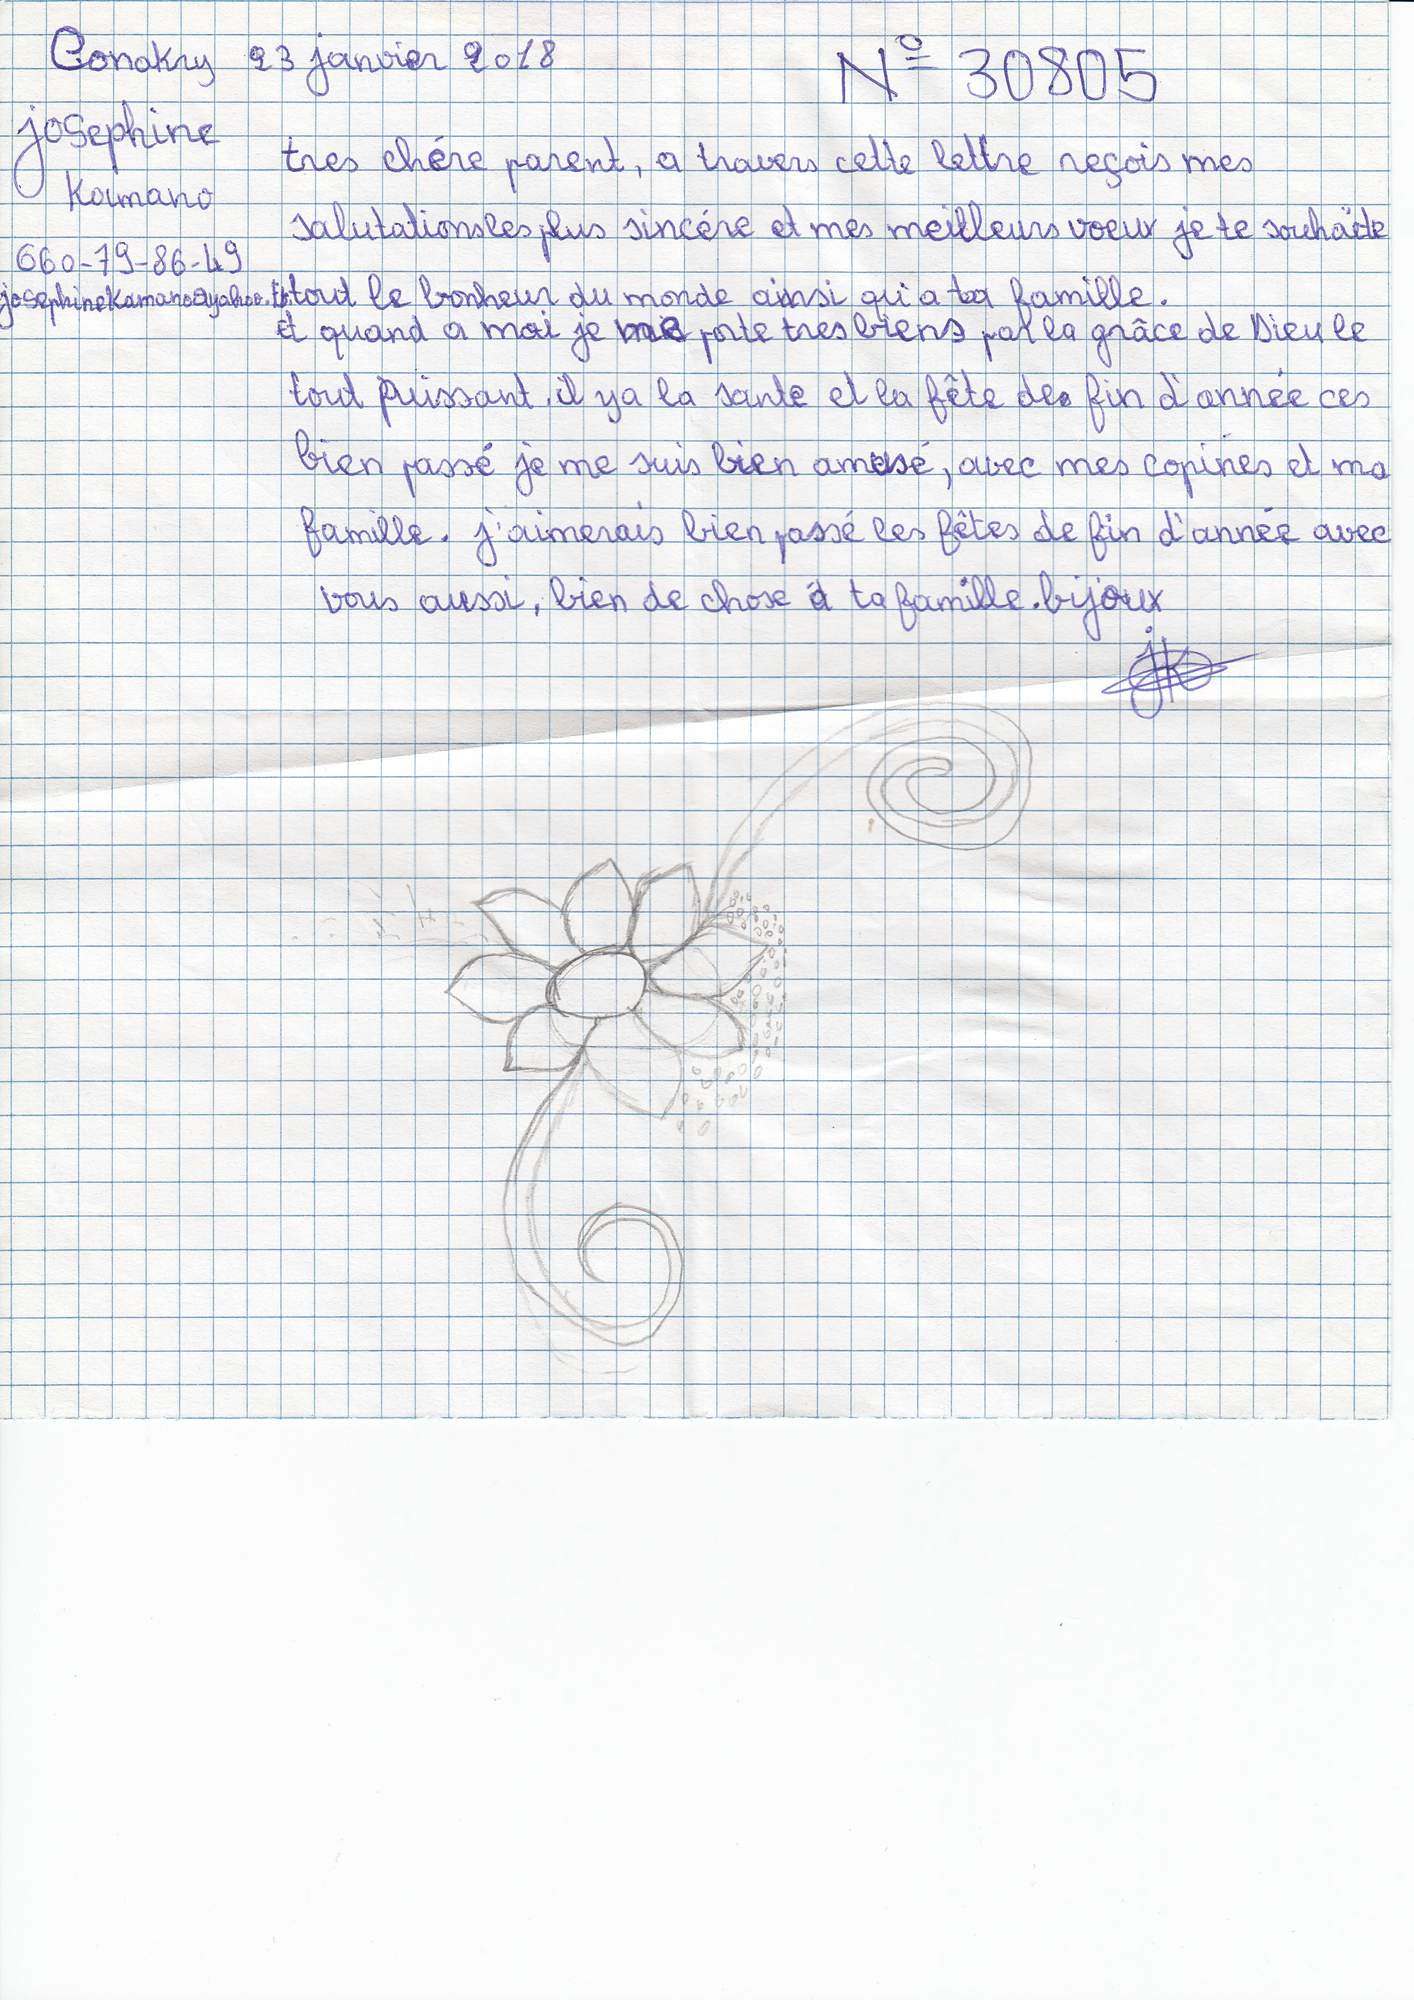 Conakry 23 janvier 2018
N° 30805
josephine
Kamano
660-79-86-49
josephinekamano@yahoo.fr
tres chére parent, a travers cette lettre reçois mes
salutations les plus sincére et mes meilleurs voeux je te souhaite
tout le bonheur du monde ainsi qui a ta famille.
Et quand a moi je me porte tres biens par la grâce de Dieu le
tout puissant. il ya la sante et la fête de fin d'année ces
bien passé je me suis bien amusé, avec mes copines et ma
famille. j'aimerais bien passé les fêtes de fin d'année avec
vous aussi, bien de chose à ta famille. bijoux
JK